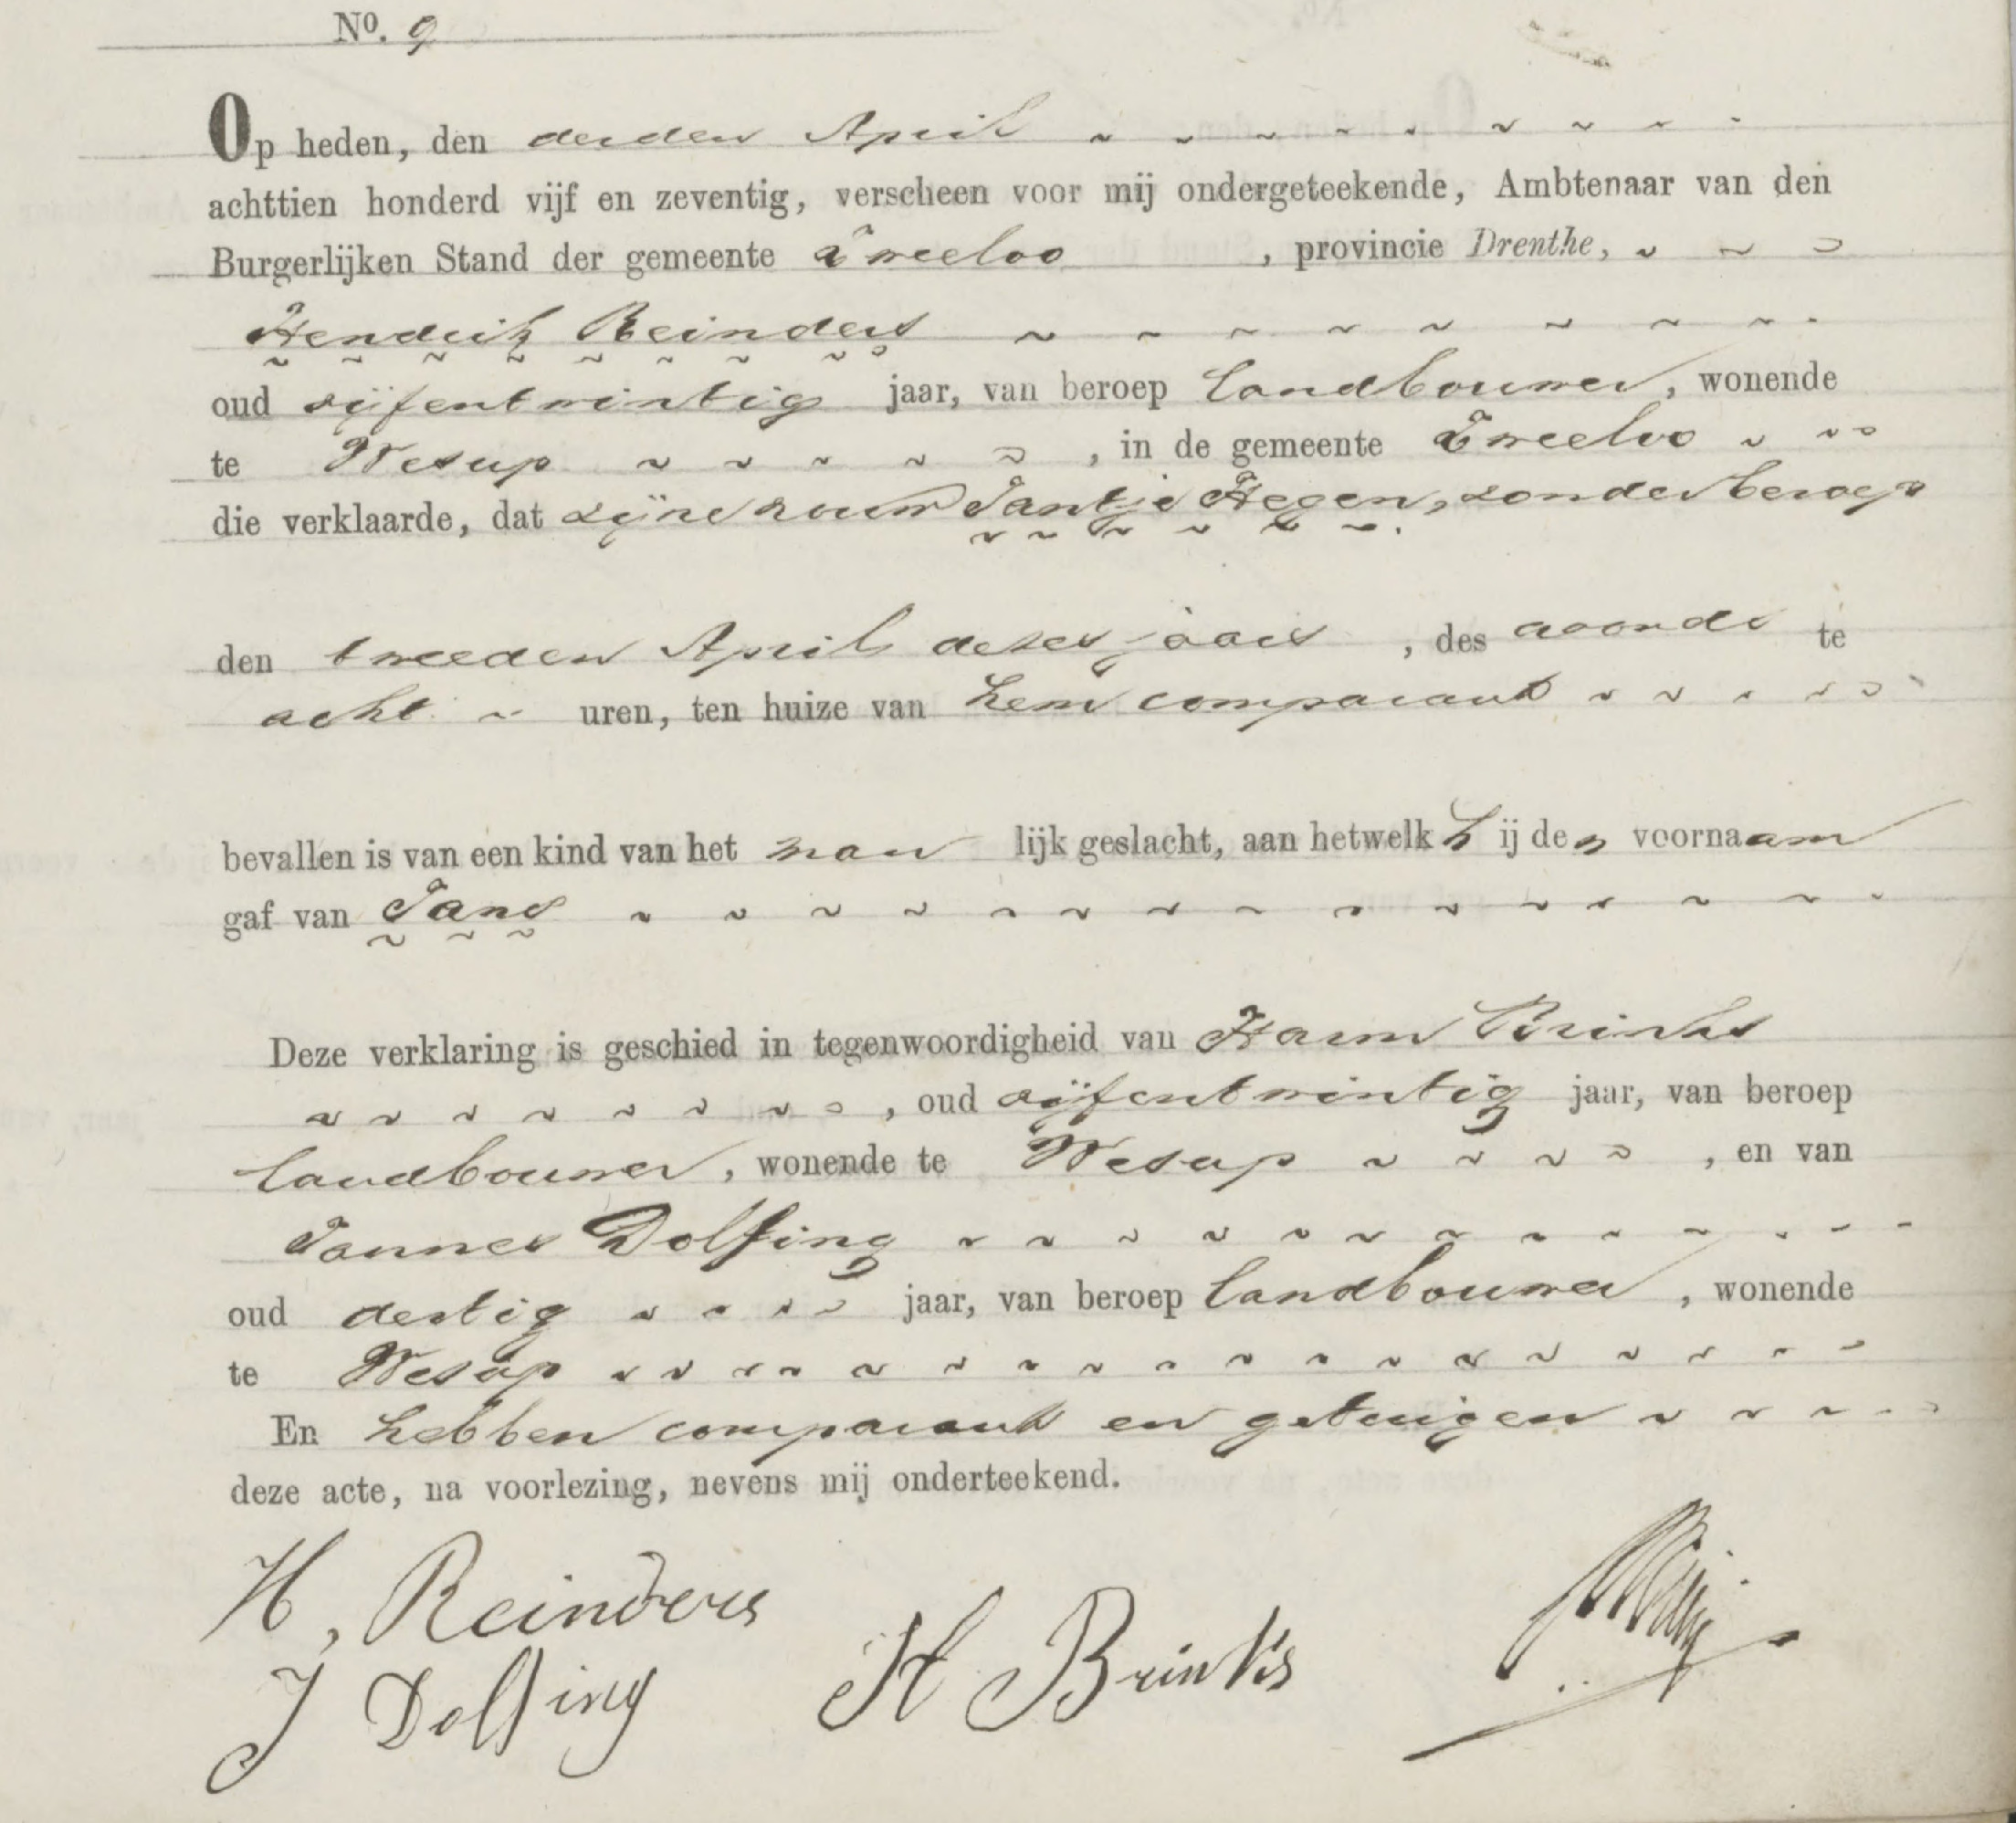 No. 9
Op heden, den derden April
achttien honderd vijf en zeventig, verscheen voor mij ondergeteekende, Ambtenaar van den
Burgerlijken Stand der gemeente Zweeloo, provincie Drenthe,
Hendrik Reinders
oud vijfentwintig jaar, van beroep landbouwer, wonende
te Wesup, in de gemeente Zweeloo
die verklaarde, dat zijne vrouw Jantje Hegen, zonder beroep
den tweeden April dezes jaars, des avonds te
acht uren, ten huize van hem comparant
bevallen is van een kind van het man lijk geslacht, aan hetwelk h ij de n voornaam
gaf van Jans
Deze verklaring is geschied in tegenwoordigheid van Harm Brinks
, oud vijfentwintig jaar, van beroep
landbouwer, wonende te Wesup, en van
Jannes Dolfing
oud dertig jaar, van beroep landbouwer, wonende
te Wesup
En hebben comparant en getuigen
deze acte, na voorlezing, nevens mij onderteekend.
H, Reinders
J Dolfing H Brinks